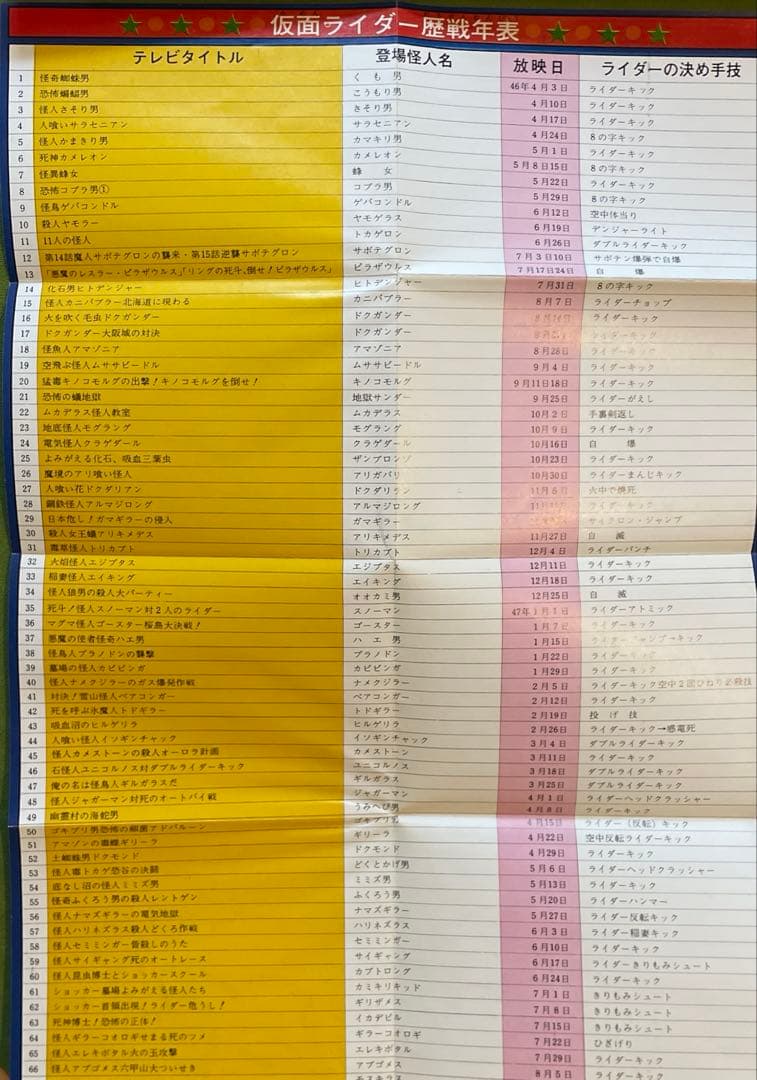 仮面ライダー歴戦年表
テレビタイトル 登場怪人名 放映日 ライダーの決め手技
1 怪奇蜘蛛男 くも男 46年4月3日 ライダーキック
2 恐怖蝙蝠男 こうもり男 4月10日 ライダーキック
3 怪人さそり男 さそり男 4月17日 ライダーキック
4 人喰いサラセニアン サラセニアン 4月24日 8の字キック
5 怪人かまきり男 カマキリ男 5月1日 ライダーキック
6 死神カメレオン カメレオン 5月8日15日 8の字キック
7 怪異蜂女 蜂女 5月22日 ライダーキック
8 恐怖コブラ男① コブラ男 5月29日 8の字キック
9 怪鳥ゲバコンドル ゲバコンドル 6月12日 空中体当り
10 殺人ヤモラー ヤモゲラス 6月19日 デンジャーライト
11 11人の怪人 トカゲロン 6月26日 ダブルライダーキック
12 第14話魔人サボテグロンの襲来・第15話逆襲サボテグロン サボテグロン 7月3日10日 サボテン爆弾で自爆
13 「悪魔のレスラー・ピラザウルス」「リングの死斗、倒せ!ピラザウルス」 ピラザウルス 7月17日24日 自爆
14 化石男ヒトデンジャー ヒトデンジャー 7月31日 8の字キック
15 怪人カニバブラー北海道に現わる カニバブラー 8月7日 ライダーチョップ
16 火を吹く毛虫ドクガンダー ドクガンダー ライダーキック
17 ドクガンダー大阪城の対決 ドクガンダー ライダーキック
18 怪魚人アマゾニア アマゾニア 8月28日 ライダーキック
19 空飛ぶ怪人ムササビードル ムササビードル 9月4日 ライダーキック
20 猛毒キノコモルグの出撃!キノコモルグを倒せ! キノコモルグ 9月11日18日 ライダーキック
21 恐怖の蟻地獄 地獄サンダー 9月25日 ライダーがえし
22 ムカデラス怪人教室 ムカデラス 10月2日 手裏剣返し
23 地底怪人モグラング モグラング 10月9日 ライダーキック
24 電気怪人クラゲダール クラゲダール 10月16日 自爆
25 よみがえる化石、吸血三葉虫 ザンブロンゾ 10月23日 ライダーキック
26 魔境のアリ喰い怪人 アリガバリ 10月30日 ライダーまんじキック
27 人喰い花ドクダリアン ドクダリラン 11月6日 火中で焼死
28 鋼鉄怪人アルマジロング アルマジロング
29 日本危し!ガマギラーの侵入 ガマギラー サイクロン・ジャンプ
30 殺人女王蟻アリキメデス アリキメデス 11月27日 自滅
31 毒草怪人トリカブト トリカブト 12月4日 ライダーパンチ
32 火焔怪人エジプタス エジプタス 12月11日 ライダーキック
33 稲妻怪人エイキング エイキング 12月18日 ライダーキック
34 怪人狼男の殺人大パーティー オオカミ男 12月25日 自滅
35 死斗!怪人スノーマン対2人のライダー スノーマン 47年1月1日 ライダーアトミック
36 マグマ怪人ゴースター桜島大決戦! ゴースター 1月7日 ライダーキック
37 悪魔の使者怪奇ハエ男 ハエ男 1月15日 ライダージャンプ→キック
38 怪鳥人プラノドンの襲撃 プラノドン 1月22日 ライダーキック
39 墓場の怪人カビビンガ カビビンガ 1月29日 ライダーキック
40 怪人ナメクジラーのガス爆発作戦 ナメクジラー 2月5日 ライダーキック空中2回ひねり必殺技
41 対決!雪山怪人ベアコンガー ベアコンガー 2月12日 ライダーキック
42 死を呼ぶ氷魔人トドギラー トドギラー 2月19日 投げ技
43 吸血沼のヒルゲリラ ヒルゲリラ 2月26日 ライダーキック→感電死
44 人喰い怪人イソギンチャック イソギンチャック 3月4日 ダブルライダーキック
45 怪人カメストーンの殺人オーロラ計画 カメストーン 3月11日 ライダーキック
46 石怪人ユニコルノス対ダブルライダーキック ユニコルノス 3月18日 ダブルライダーキック
47 俺の名は怪鳥人ギルガラスだ ギルガラス 3月25日 ダブルライダーキック
48 怪人ジャガーマン対死のオートバイ戦 ジャガーマン 4月1日 ライダーヘッドクラッシャー
49 幽霊村の海蛇男 うみへび男 4月8日 ライダーキック
50 ゴキブリ男恐怖の細菌アドバルーン ゴキブリ男 4月15日 ライダー(反転)キック
51 アマゾンの毒蝶ギリーラ ギリーラ 4月22日 空中反転ライダーキック
52 土蜘蛛男ドクモンド ドクモンド 4月29日 ライダーキック
53 怪人毒トカゲ恐谷の決闘 どくとかげ男 5月6日 ライダーヘッドクラッシャー
54 底なし沼の怪人ミミズ男 ミミズ男 5月13日 ライダーキック
55 怪奇ふくろう男の殺人レントゲン ふくろう男 5月20日 ライダーハンマー
56 怪人ナマズギラーの電気地獄 ナマズギラー 5月27日 ライダー反転キック
57 怪人ハリネズラス殺人どくろ作戦 ハリネズラス 6月3日 ライダー稲妻キック
58 怪人セミミンガー皆殺しのうた セミミンガー 6月10日 ライダーキック
59 怪人サイギャング死のオートレース サイギャング 6月17日 ライダーきりもみシュート
60 怪人昆虫博士とショッカースクール カブトロング 6月24日 ライダーキック
61 ショッカー墓場よみがえる怪人たち カミキリキッド 7月1日 きりもみシュート
62 ショッカー首領出現!ライダー危うし! ギリザメス 7月8日 きりもみシュート
63 死神博士!恐怖の正体! イカデビル 7月15日 きりもみシュート
64 怪人ギラーコオロギせまる死のツメ ギラーコオロギ 7月22日 ひざげり
65 怪人エレキボタル火の玉攻撃 エレキボタル 7月29日 ライダーキック
66 怪人アブゴメス六甲山大ついせき アブゴメス 8月5日 ライダーキック